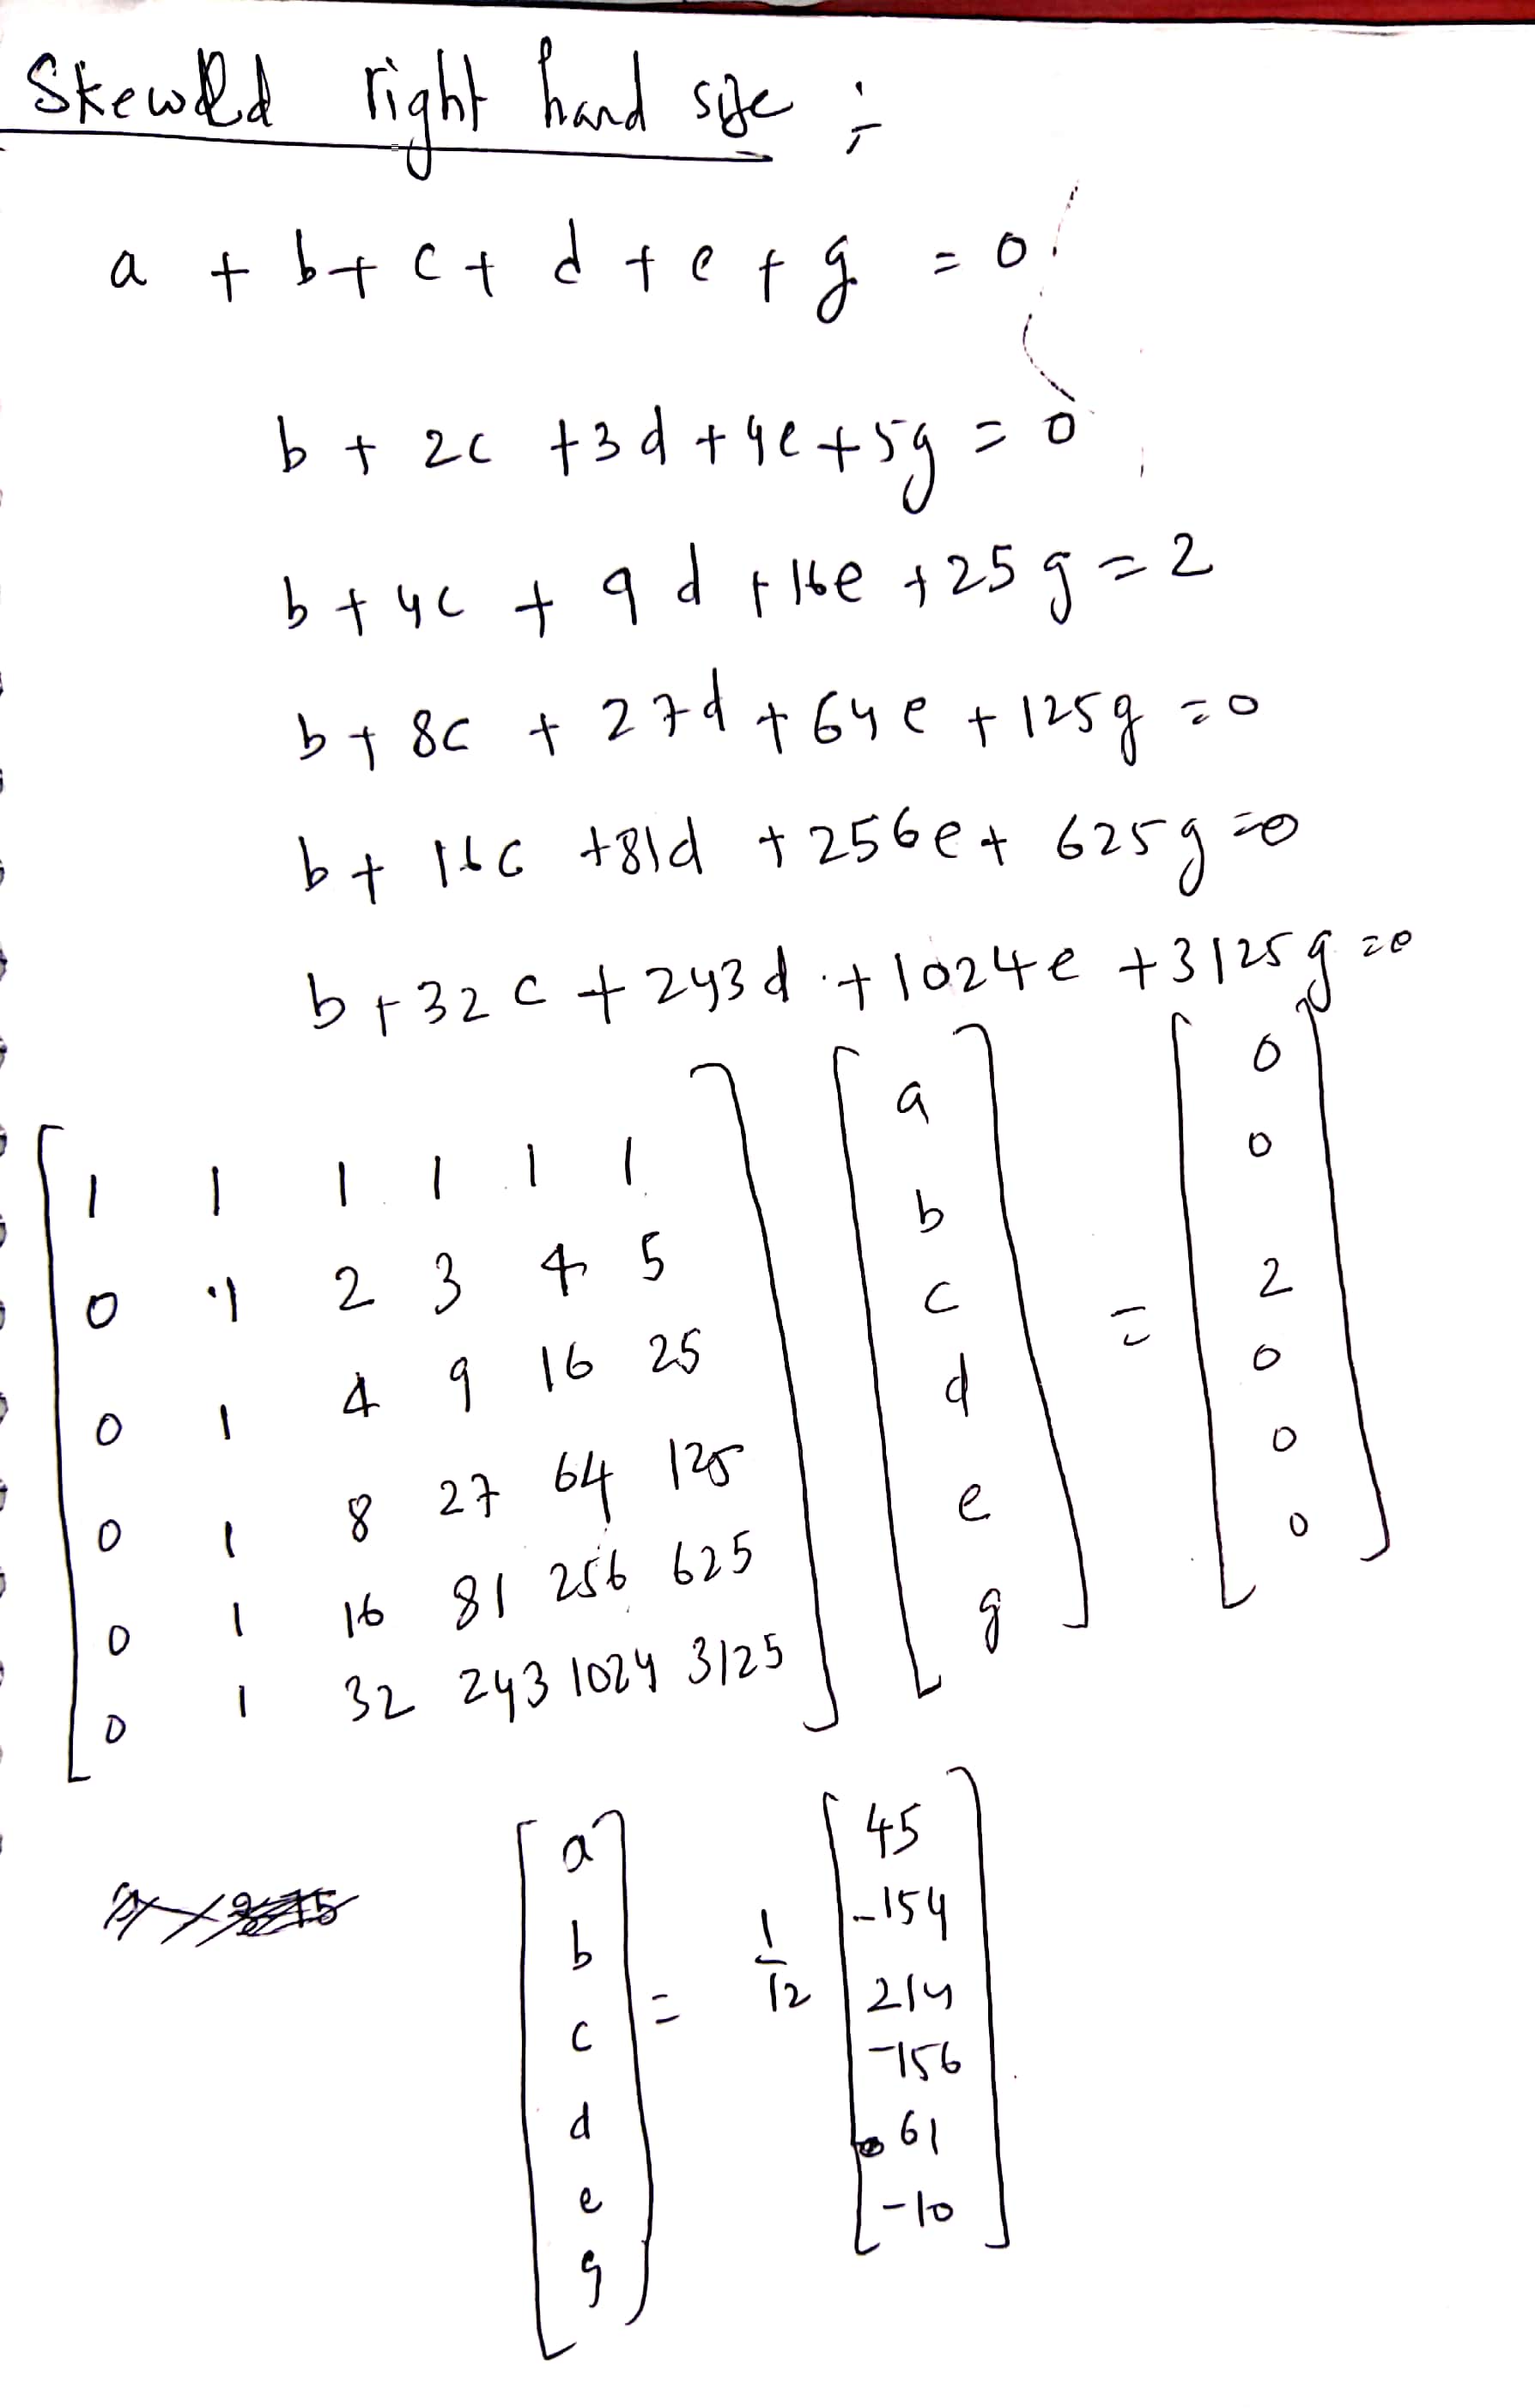 Skewed right hand side :-
a + b + c + d + e + g = 0
b + 2c + 3d + 4e + 5g = 0
b + 4c + 9d + 16e + 25g = 2
b + 8c + 27d + 64e + 125g = 0
b + 16c + 81d + 256e + 625g = 0
b + 32c + 243d + 1024e + 3125g = 0
[ 1 1 1 1 1 1 ] [ a ] = [ 0 ]
[ 0 1 2 3 4 5 ] [ b ] [ 0 ]
[ 0 1 4 9 16 25 ] [ c ] [ 2 ]
[ 0 1 8 27 64 125 ] [ d ] [ 0 ]
[ 0 1 16 81 256 625 ] [ e ] [ 0 ]
[ 0 1 32 243 1024 3125 ] [ g ] [ 0 ]
[ a ] = 1/12 [ 45 ]
[ b ] [ -154 ]
[ c ] [ 214 ]
[ d ] [ -156 ]
[ e ] [ 61 ]
[ g ] [ -10 ]